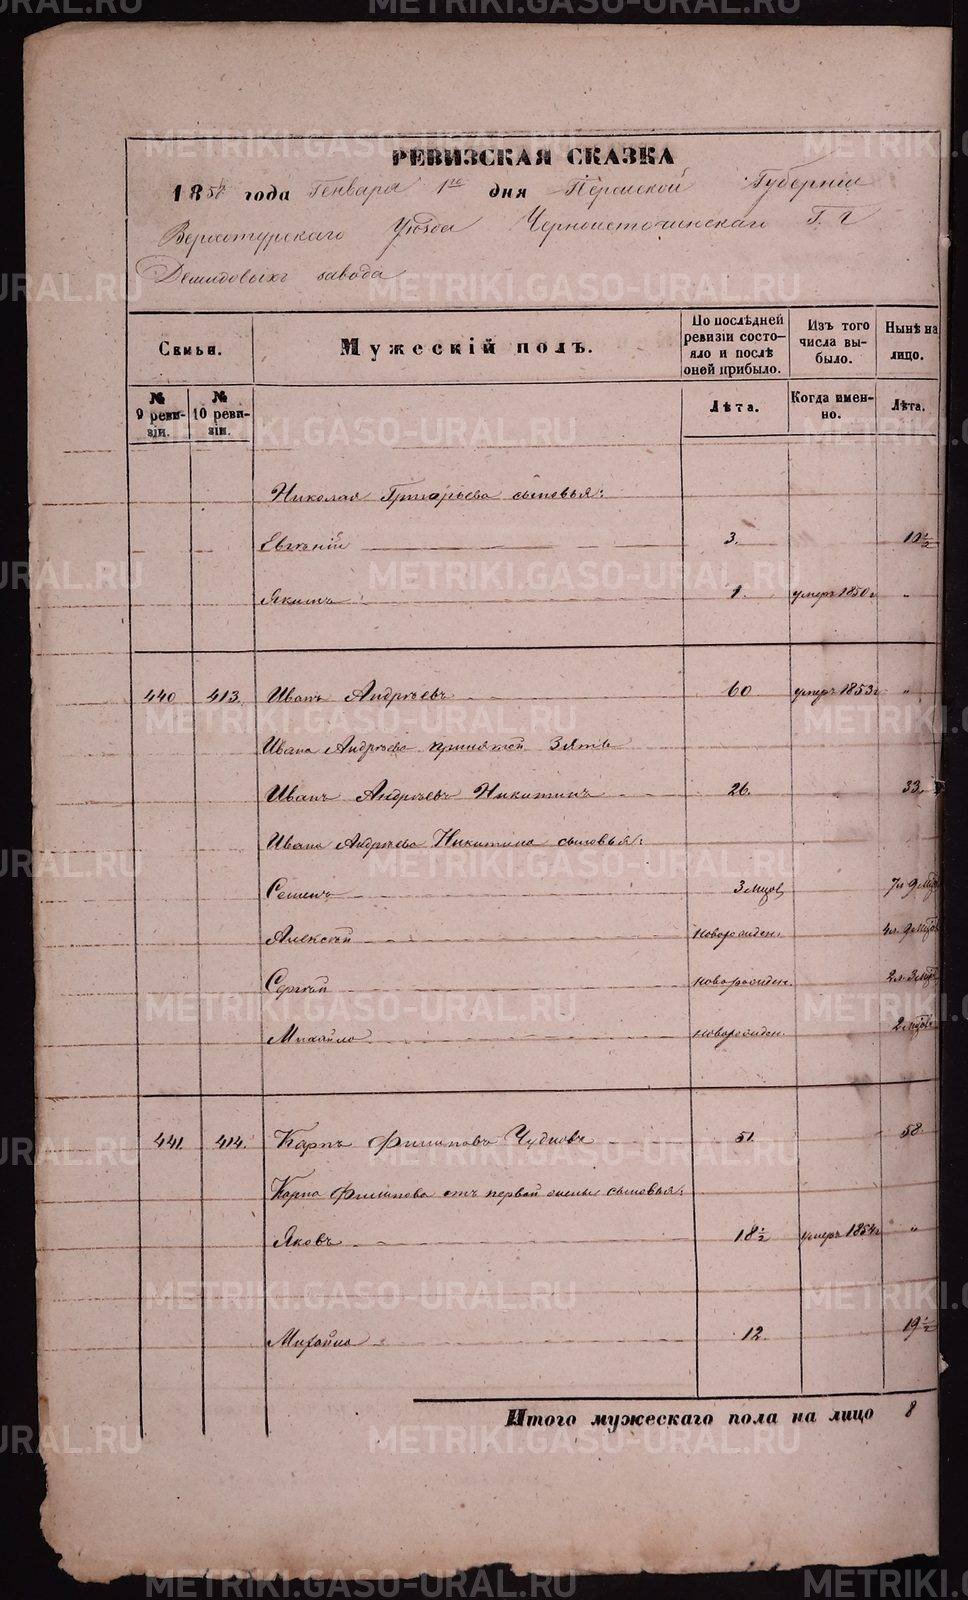 РЕВИЗСКАЯ СКАЗКА
1858 года Генваря 1го дня Пермской Губерніи
Верхотурскаго Уѣзда Черноисточинскаго Г. Г.
Демидовыхъ завода
Семьи.
Мужескій полъ.
По послѣдней ревизіи состояло и послѣ оней прибыло.
Изъ того числа выбыло.
Нынѣ на лицо.
№ 9 ревизіи.
№ 10 ревизіи.
Лѣта.
Когда именно.
Лѣта.
Николая Григорьева сыновья:
Евгеній 3. 10 1/2
Якимъ 1. умеръ 1850 г "
440 413. Иванъ Андреевъ 60 умеръ 1853 г "
Ивана Андреева принятой Зять
Иванъ Андреевъ Никитинъ 26. 33.
Ивана Андреева Никитина сыновья:
Семенъ 3 мцов 7 л 9 мцов
Алексѣй новорожден. 4 л. 9 мцов
Сергѣй новорожден. 2 л. 3 мцов
Михайло новорожден. 2 мцов
441. 414. Карпъ Филиповъ Чудновъ 51. 58
Карпа Филипова отъ первой жены сыновья:
Яковъ 18 1/2 умеръ 1854 г "
Михайло 12. 19 1/2
Итого мужескаго пола на лицо 8
METRIKI.GASO-URAL.RU